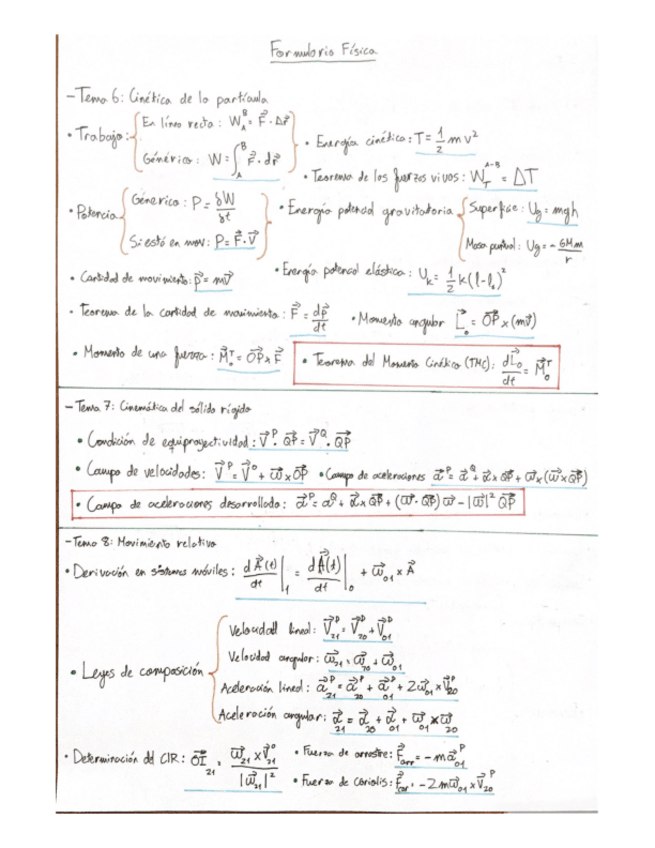 Formulario Física
- Tema 6: Cinética de la partícula
• Trabajo: En línea recta: W_A^B = F⃗ · Δr⃗
Genérico: W = ∫_A^B F⃗ · dr⃗
• Energía cinética: T = 1/2 m v²
• Teorema de las fuerzas vivas: W_T^{A-B} = ΔT
• Potencia Génerica: P = δW/δt
Si está en mov: P = F⃗ · V⃗
• Energía potencial gravitatoria Superficie: Ug = mgh
Masa puntual: Ug = - GMm/r
• Cantidad de movimiento: p⃗ = mv⃗
• Energía potencial elástica: U_k = 1/2 k(l-l₀)²
• Teorema de la cantidad de movimiento: F⃗ = dp⃗/dt
• Momento angular L⃗_o = OP⃗ × (mv⃗)
• Momento de una fuerza: M⃗_o^T = OP⃗ × F⃗
• Teorema del Momento Cinético (TMC): dL⃗_o/dt = M⃗_o^T
- Tema 7: Cinemática del sólido rígido
• Condición de equiproyectividad: V⃗^P · QP⃗ = V⃗^Q · QP⃗
• Campo de velocidades: V⃗^P = V⃗^o + ω⃗ × OP⃗
• Campo de aceleraciones a⃗^P = a⃗^Q + α⃗ × QP⃗ + ω⃗ × (ω⃗ × QP⃗)
• Campo de aceleraciones desarrollado: a⃗^P = a⃗^Q + α⃗ × QP⃗ + (ω⃗ · QP⃗) ω⃗ - |ω⃗|² QP⃗
- Tema 8: Movimiento relativo
• Derivación en sistemas móviles: dA⃗(t)/dt |₁ = dA⃗(t)/dt |₀ + ω⃗₀₁ × A⃗
• Leyes de composición
Velocidad lineal: V⃗₂₁^P = V⃗₂₀^P + V⃗₀₁^P
Velocidad angular: ω⃗₂₁ = ω⃗₂₀ + ω⃗₀₁
Aceleración lineal: a⃗₂₁^P = a⃗₂₀^P + a⃗₀₁^P + 2ω⃗₀₁ × V⃗₂₀^P
Aceleración angular: α⃗₂₁ = α⃗₂₀ + α⃗₀₁ + ω⃗₀₁ × ω⃗₂₀
• Determinación del CIR: OI⃗₂₁ = ω⃗₂₁ × V⃗₂₁^o / |ω⃗₂₁|²
• Fuerza de arrastre: F⃗_arr = - m a⃗₀₁^P
• Fuerza de Coriolis: F⃗_cor = - 2 m ω⃗₀₁ × V⃗₂₀^P